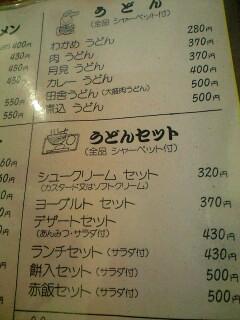 メン
400円
450円
430円
450円
550円
550円
うどん
(全品 シャーベット付)
280円
わかめ うどん 370円
肉 うどん 370円
月見 うどん 400円
カレー うどん 430円
田舎うどん(大筋肉うどん) 500円
煮込 うどん 500円
うどんセット
(全品 シャーベット付)
シュークリーム セット 320円
(カスタード又はソフトクリーム)
ヨーグルト セット 370円
デザートセット
(あんみつ・サラダ付) 430円
ランチセット (サラダ付) 430円
餅入セット (サラダ付) 500円
赤飯セット (サラダ付) 500円